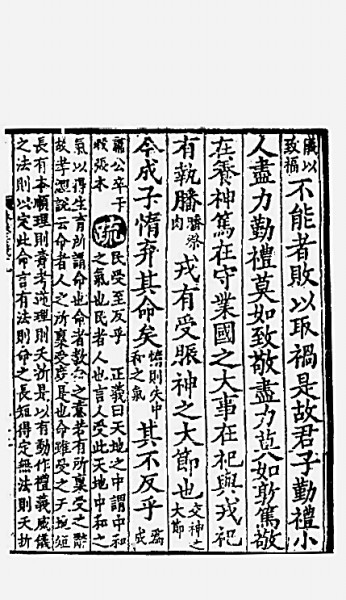 儀以致福不能者敗以取禍是故君子勤禮小
人盡力勤禮莫如致敬盡力莫如敦篤敬
在養神篤在守業國之大事在祀與戎祀
有執膰膰祭肉戎有受脤神之大節也交神之大節
今成子惰弃其命矣惰則失中和之氣其不反乎為成
肅公卒于瑕張本疏民受至反乎 正義曰天地之中謂中和之氣也民者人也言人受此天地中和之
氣以得生育所謂命也命者教命之意若有所稟受之辭
故孝經說云命者人之所稟受度是也命雖受之天地短
長有本順理則壽考逆理則夭折是以有動作禮義威儀
之法則以定此命言有法則命之長短得定無法則夭折